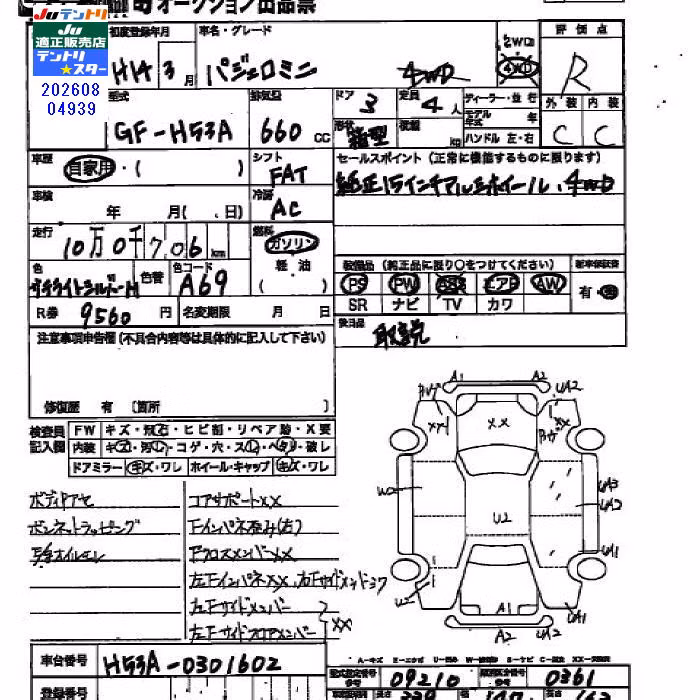 Juテントリ オークション出品票
Ju
適正販売店
テントリ
★スター
202608
04939
初度登録年月 車名・グレード 2WD 評価点
H14 3月 パジェロミニ 4WD 4WD R
型式 排気量 ドア 定員 ディーラー・並行 外装 内装
GF-H53A 660 CC 3 4人 モデル年式 年
形状 箱型 積載 kg ハンドル 左・右 C C
車歴 自家用・( ) シフト FAT セールスポイント (正常に機能するものに限ります)
純正15インチアルミホイール、4WD
車検 年 月( . 日) 冷房 AC
走行 10万0千706km 燃料 ガソリン
軽油
( )
装備品 (純正品に限り○をつけてください) 新車保証書
色 サテライトシルバーM 色替 色コード A69 PS PW エアB AW 有・無
SR ナビ TV カワ
R券 9560円 名変期限 月 日 後日品 取説
注意事項申告欄 (不具合内容等は具体的に記入して下さい)
修復歴 有 〔箇所
検査員記入欄 FW キズ・飛石・ヒビ割・リペア跡・X要
内装 キズ・汚れ・コゲ・穴・スレ・ヘタリ・破レ
ドアミラー キズ・ワレ ホイール・キャップ キズ・ワレ
ボディアセ コアサポートXX
ボンネットラッピング Fインパネ歪み(右)
FクロスメンバーXX
左FインパネXX、右Fサイドメンバー
左Fサイドメンバー
左FサイドコアメンバーXX
A1 A2
UA2
XX
XX
XX
U2
UA3
UA2
UA1
U2
U2
A1
A2 UA1 UA1
車台番号 H53A-0301602
A-キズ
09210 0361
登録番号